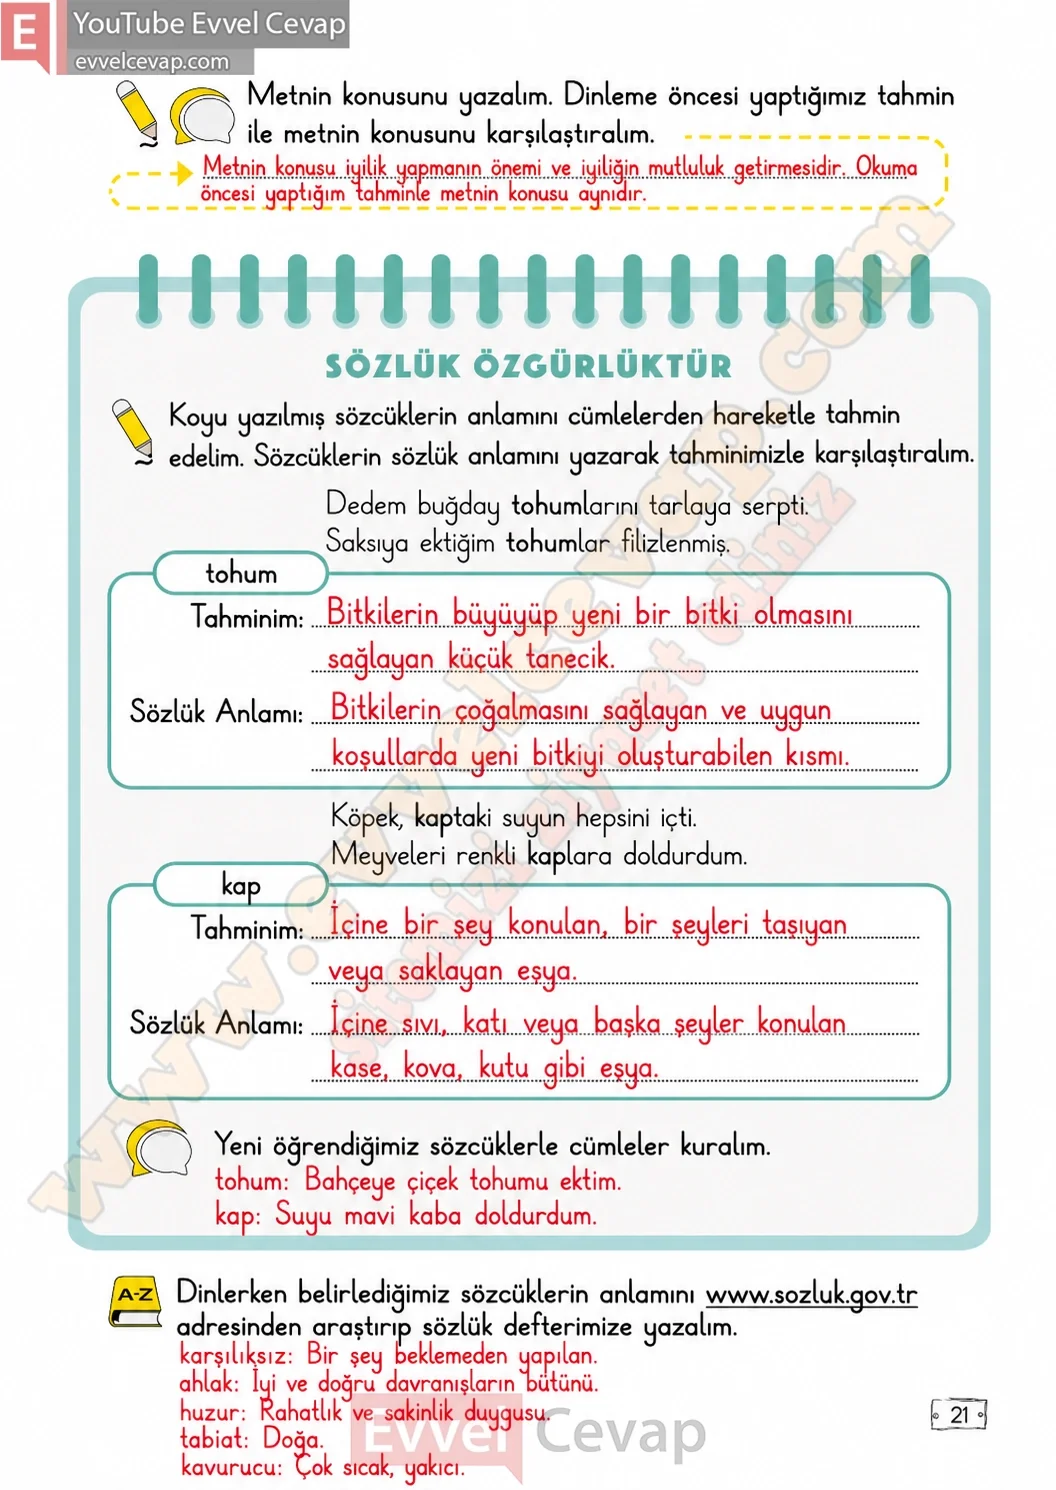 E YouTube Evvel Cevap
evvelcevap.com
Metnin konusunu yazalım. Dinleme öncesi yaptığımız tahmin
ile metnin konusunu karşılaştıralım.
Metnin konusu iyilik yapmanın önemi ve iyiliğin mutluluk getirmesidir. Okuma
öncesi yaptığım tahminle metnin konusu aynıdır.
SÖZLÜK ÖZGÜRLÜKTÜR
Koyu yazılmış sözcüklerin anlamını cümlelerden hareketle tahmin
edelim. Sözcüklerin sözlük anlamını yazarak tahminimizle karşılaştıralım.
Dedem buğday tohumlarını tarlaya serpti.
Saksıya ektiğim tohumlar filizlenmiş.
tohum
Tahminim: Bitkilerin büyüyüp yeni bir bitki olmasını
sağlayan küçük tanecik.
Sözlük Anlamı: Bitkilerin çoğalmasını sağlayan ve uygun
koşullarda yeni bitkiyi oluşturabilen kısmı.
Köpek, kaptaki suyun hepsini içti.
Meyveleri renkli kaplara doldurdum.
kap
Tahminim: İçine bir şey konulan, bir şeyleri taşıyan
veya saklayan eşya.
Sözlük Anlamı: İçine sıvı, katı veya başka şeyler konulan
kase, kova, kutu gibi eşya.
Yeni öğrendiğimiz sözcüklerle cümleler kuralım.
tohum: Bahçeye çiçek tohumu ektim.
kap: Suyu mavi kaba doldurdum.
A-Z
Dinlerken belirlediğimiz sözcüklerin anlamını www.sozluk.gov.tr
adresinden araştırıp sözlük defterimize yazalım.
karşılıksız: Bir şey beklemeden yapılan.
ahlak: İyi ve doğru davranışların bütünü.
huzur: Rahatlık ve sakinlik duygusu.
tabiat: Doğa.
kavurucu: Çok sıcak, yakıcı.
Evvel Cevap
21
www.evvelcevap.com
sitemizi ziyaret ediniz